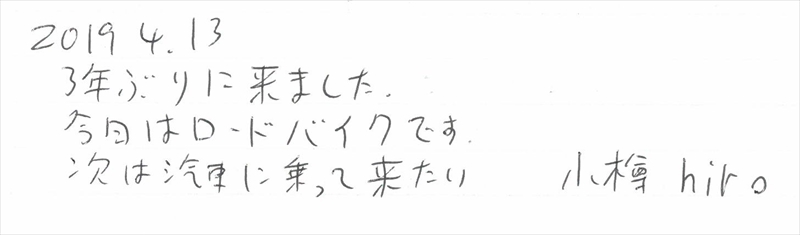 2019 4.13
3年ぶりに来ました.
今日はロードバイクです.
次は汽車に乗って来たい 小樽 hiro